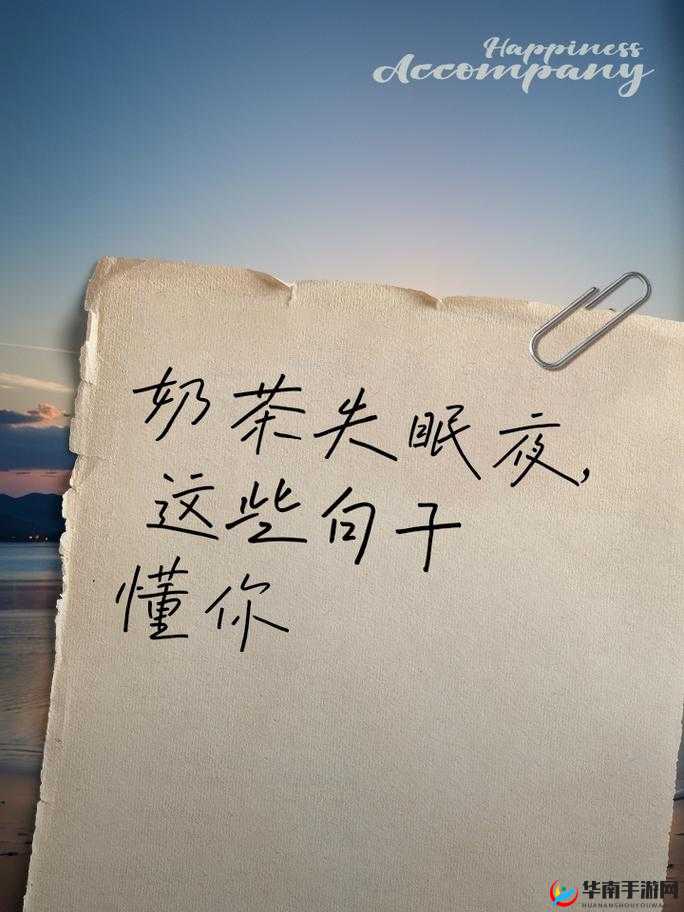 Happiness
Accompany
奶茶失眠夜,
这些句子
懂你
华南手游网